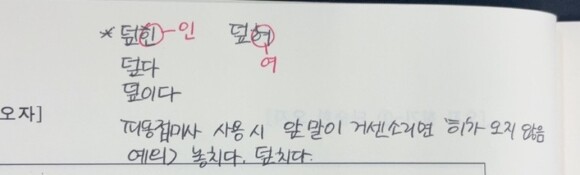 * 덮힌-인 덮혀
여
덮다
덮이다
오자]
피동접미사 사용시 앞말이 거센소리면 '히'가 오지 않음
예외> 놓치다. 덮치다.